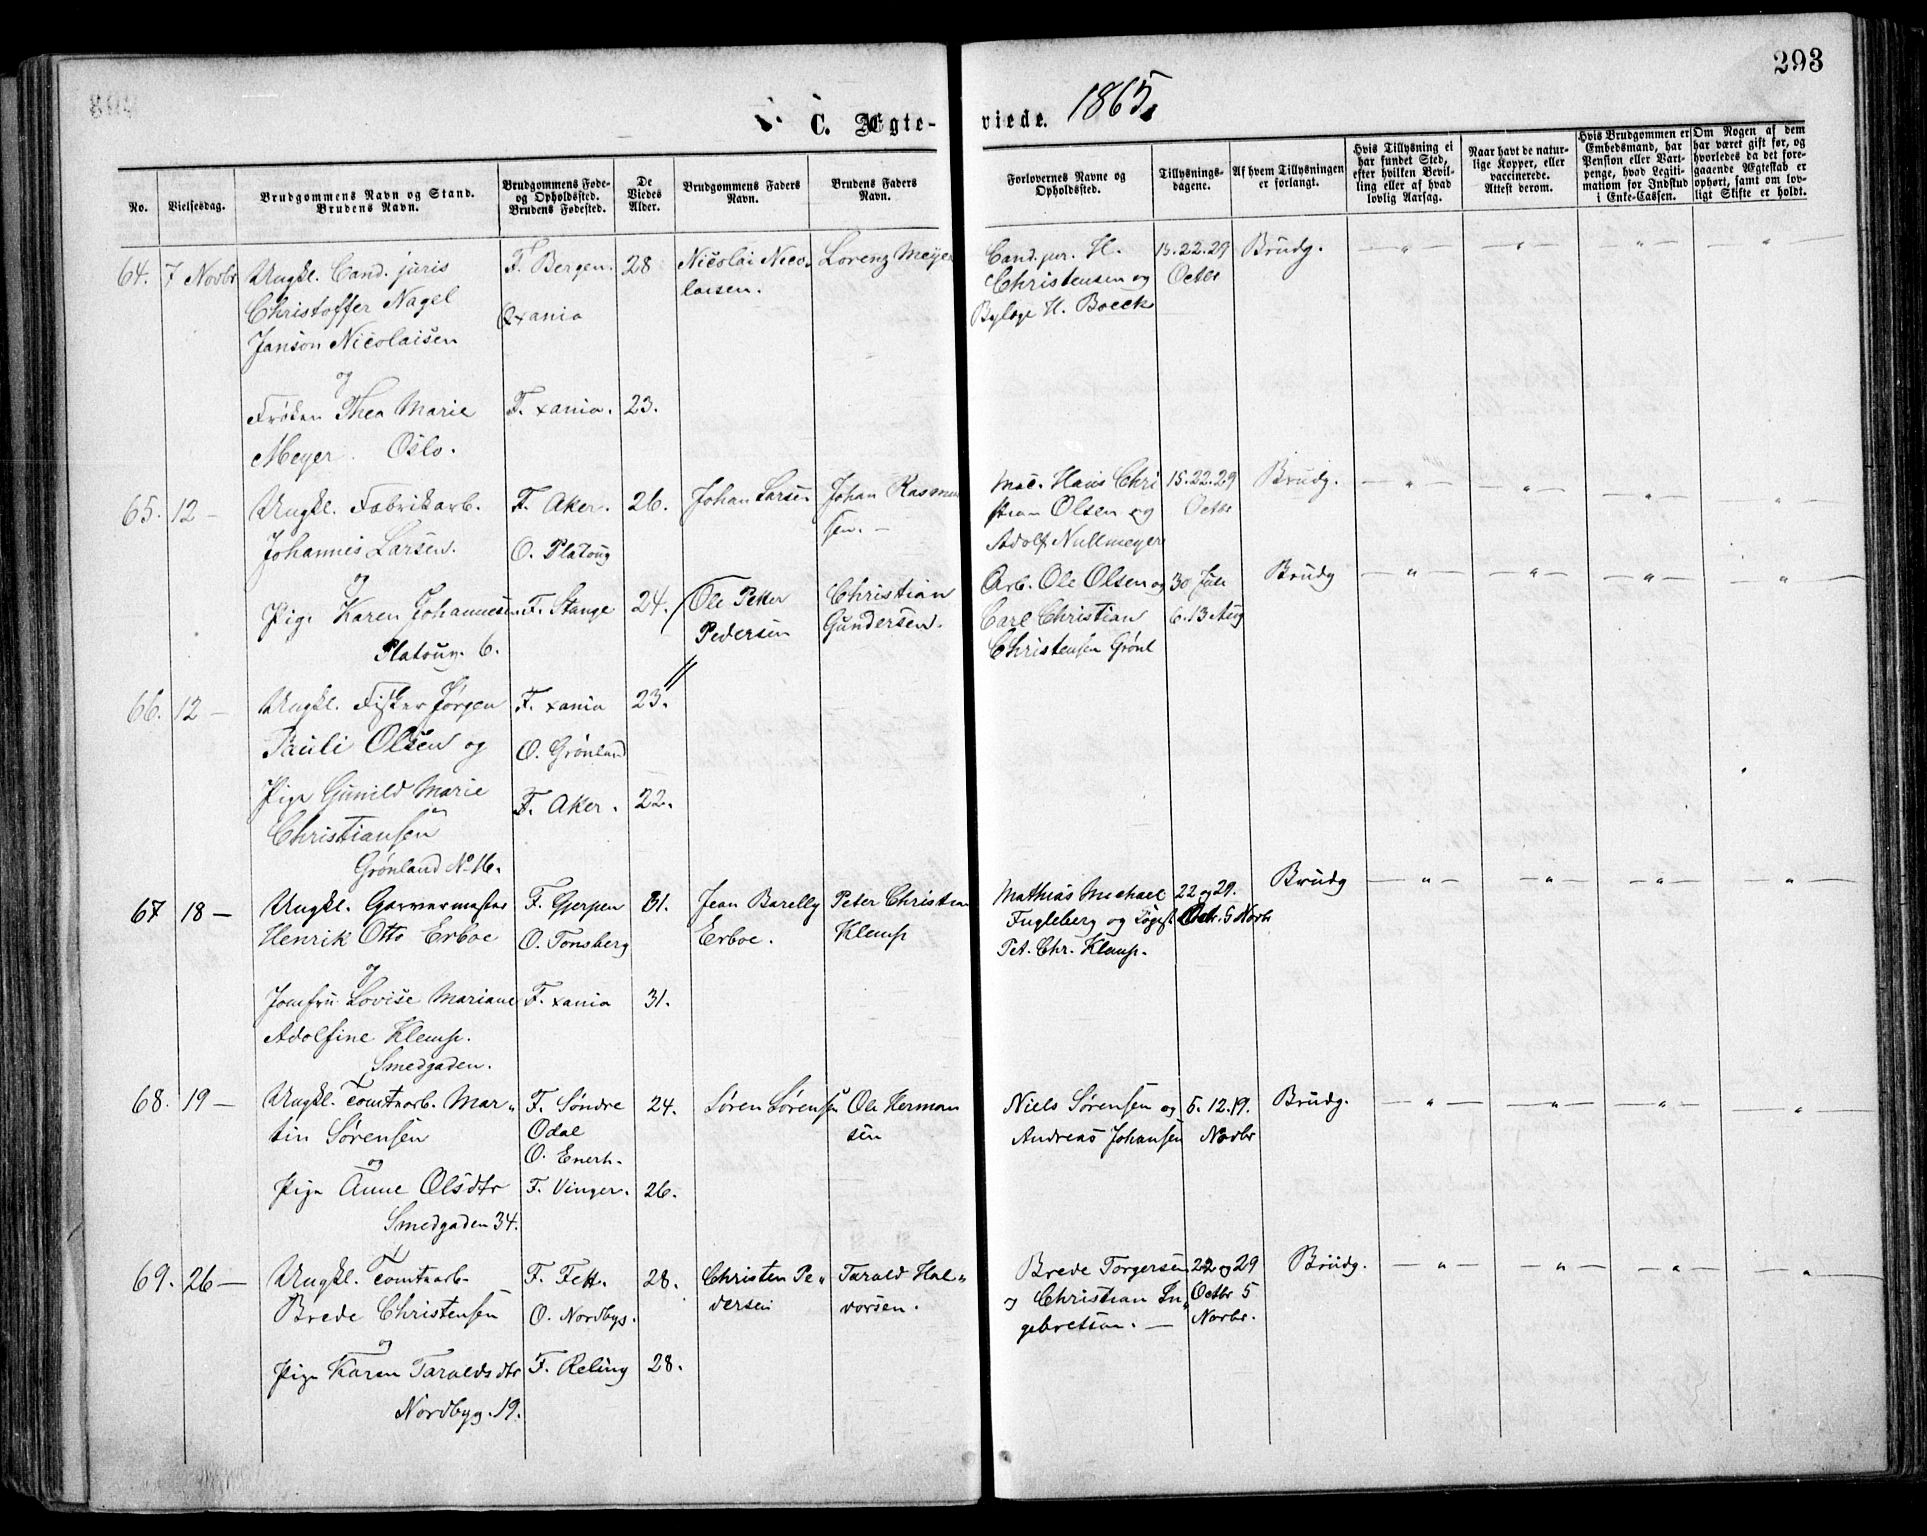 293
C. Ægte-
viede. 1865.
No.
Vielsesdag.
Brudgommens Navn og Stand.
Brudens Navn.
Brudgommens Føde-
og Opholdssted.
Brudens Fødested.
De
Viedes
Alder.
Brudgommens Faders
Navn.
Brudens Faders
Navn.
Forlovernes Navne og
Opholdssted.
Tillysnings-
dagene.
Af hvem Tillysningen
er forlangt.
Hvis Tillysning ei
har fundet Sted,
efter hvilken Bevil-
ling eller af hvad
lovlig Aarsag.
Naar havt de natur-
lige Kopper, eller
vaccinerede.
Attest derom.
Hvis Brudgommen er
Embedsmand, har
Pension eller Vart-
penge, hvad Legiti-
mation for Indskud
i Enke-Cassen.
Om Nogen af dem
har været gift før, og
hvorledes da det fore-
gaaende Ægteskab er
ophørt, samt om lov-
ligt Skifte er holdt.
64. 7 Novbr
Ungkl. Cand. juris
Christoffer Nagel
Janson Nicolaisen
og
Frøken Thea Marie
Meyer. Oslo.
F. Bergen.
O. xania
F. xania.
28
23.
Nicolai Nico-
laisen.
Lorenz Meyer
Cand. jur. H.
Christensen og
H. Boeck
15.22.29
Octbr
Brudg.
— " — — " — — " — — " —
65. 12 —
Ungkl. Fabrikarb.
Johannes Larsen.
og
Pige Karen Johannesen
Platoug. 6.
F. Aker.
O. Platoug
F. Stange
26.
24.
Johan Larsen
Johan Rasmus
sen. —
Hans Chri
stian Olsen og
Adolf Nullmeyer
15.22.29
Octbr
Brudg.
— " — — " — — " — — " —
66. 12 —
Ungkl. Fisker Jørgen
Pauli Olsen og
Pige Gunild Marie
Christiansen
Grønland No 16.
F. xania
O. Grønland
F. Aker.
23.
22.
Ole Peter
Pedersen
Christian
Gundersen.
Arb. Ole Olsen og
Carl Christian
Christensen Grønl
30 Juli
6.13 Aug
Brudg
— " — — " — — " — — " —
67 18 —
Ungkl. Garvermester
Henrik Otto Erboe
og
Jomfru Lovise Mariane
Adolfine Klemp.
Smedgaden.
F. Gjerpen
O. Tonsberg
F. xania
31.
31.
Jean Barelly
Erboe.
Peter Christian
Klemp
Mathias Michael
Fugleberg og
Pet. Chr. Klemp.
22 og 29.
Octr. 5 Novbr
Brudg
— " — — " — — " — — " —
68. 19 —
Ungkl. Tomtearb. Mar-
tin Sørensen
og
Pige Anne Olsdtr
Smedgaden 34.
F. Søndre
Odal
O. Enerh.
F. Vinger.
24.
26.
Søren Sørensen
Ole Herman
sen
Niels Sørensen og
Andreas Johansen
5. 12. 19.
Novbr
Brudg.
— " — — " — — " — — " —
69. 26 —
Ungkl. Tomtearb-
Brede Christensen
og
Pige Karen Taraldsdtr
Nordbyg. 19.
F. Fett.
O. Nordbyg.
F. Reling
28.
28.
Christen Pe-
dersen
Tarald Hal-
vorsen.
Brede Torgersen
og Christian In-
gebretsen. —
22 og 29
Octbr 5
Novbr.
Brudg.
— " — — " — — " — — " —